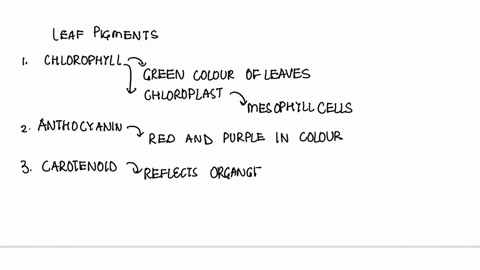 LEAF PIGMENTS
1. CHLOROPHYLL
GREEN COLOUR OF LEAVES
CHLOROPLAST
MESOPHYLL CELLS
2. ANTHOCYANIN
RED AND PURPLE IN COLOUR
3. CAROTENOID
REFLECTS ORGANGE